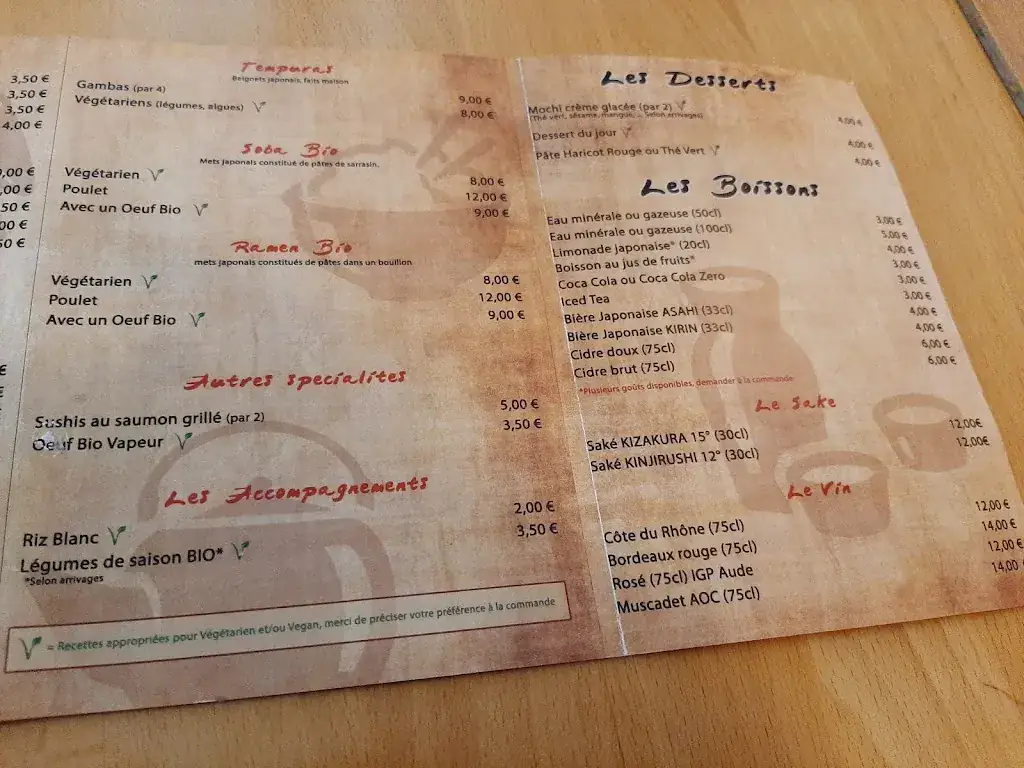 3,50 €
3,50 €
3,50 €
4,00 €
,00 €
,00 €
50 €
00 €
50 €
€
€
€
Tempuras
Beignets japonais, faits maison
Gambas (par 4) 9,00 €
Végétariens (légumes, algues) 8,00 €
Soba Bio
Mets japonais constitué de pâtes de sarrasin.
Végétarien 8,00 €
Poulet 12,00 €
Avec un Oeuf Bio 9,00 €
Ramen Bio
mets japonais constitués de pâtes dans un bouillon
Végétarien 8,00 €
Poulet 12,00 €
Avec un Oeuf Bio 9,00 €
Autres specialites
Sushis au saumon grillé (par 2) 5,00 €
Oeuf Bio Vapeur 3,50 €
Les Accompagnements
Riz Blanc 2,00 €
Légumes de saison BIO* 3,50 €
*Selon arrivages
= Recettes appropriées pour Végétarien et/ou Vegan, merci de préciser votre préférence à la commande
Les Desserts
Mochi crème glacée (par 2) 4,00 €
(Thé vert, sésame, mangue, ... Selon arrivages)
Dessert du jour 4,00 €
Pâte Haricot Rouge ou Thé Vert 4,00 €
Les Boissons
Eau minérale ou gazeuse (50cl) 3,00 €
Eau minérale ou gazeuse (100cl) 5,00 €
Limonade Japonaise* (20cl) 4,00 €
Boisson au jus de fruits* 3,00 €
Coca Cola ou Coca Cola Zero 3,00 €
Iced Tea 3,00 €
Bière Japonaise ASAHI (33cl) 4,00 €
Bière Japonaise KIRIN (33cl) 4,00 €
Cidre doux (75cl) 6,00 €
Cidre brut (75cl) 6,00 €
*Plusieurs goûts disponibles, demander à la commande
Le Sake
Saké KIZAKURA 15° (30cl) 12,00€
Saké KINJIRUSHI 12° (30cl) 12,00€
Le Vin
Côte du Rhône (75cl) 12,00 €
Bordeaux rouge (75cl) 14,00 €
Rosé (75cl) IGP Aude 12,00 €
Muscadet AOC (75cl) 14,00 €